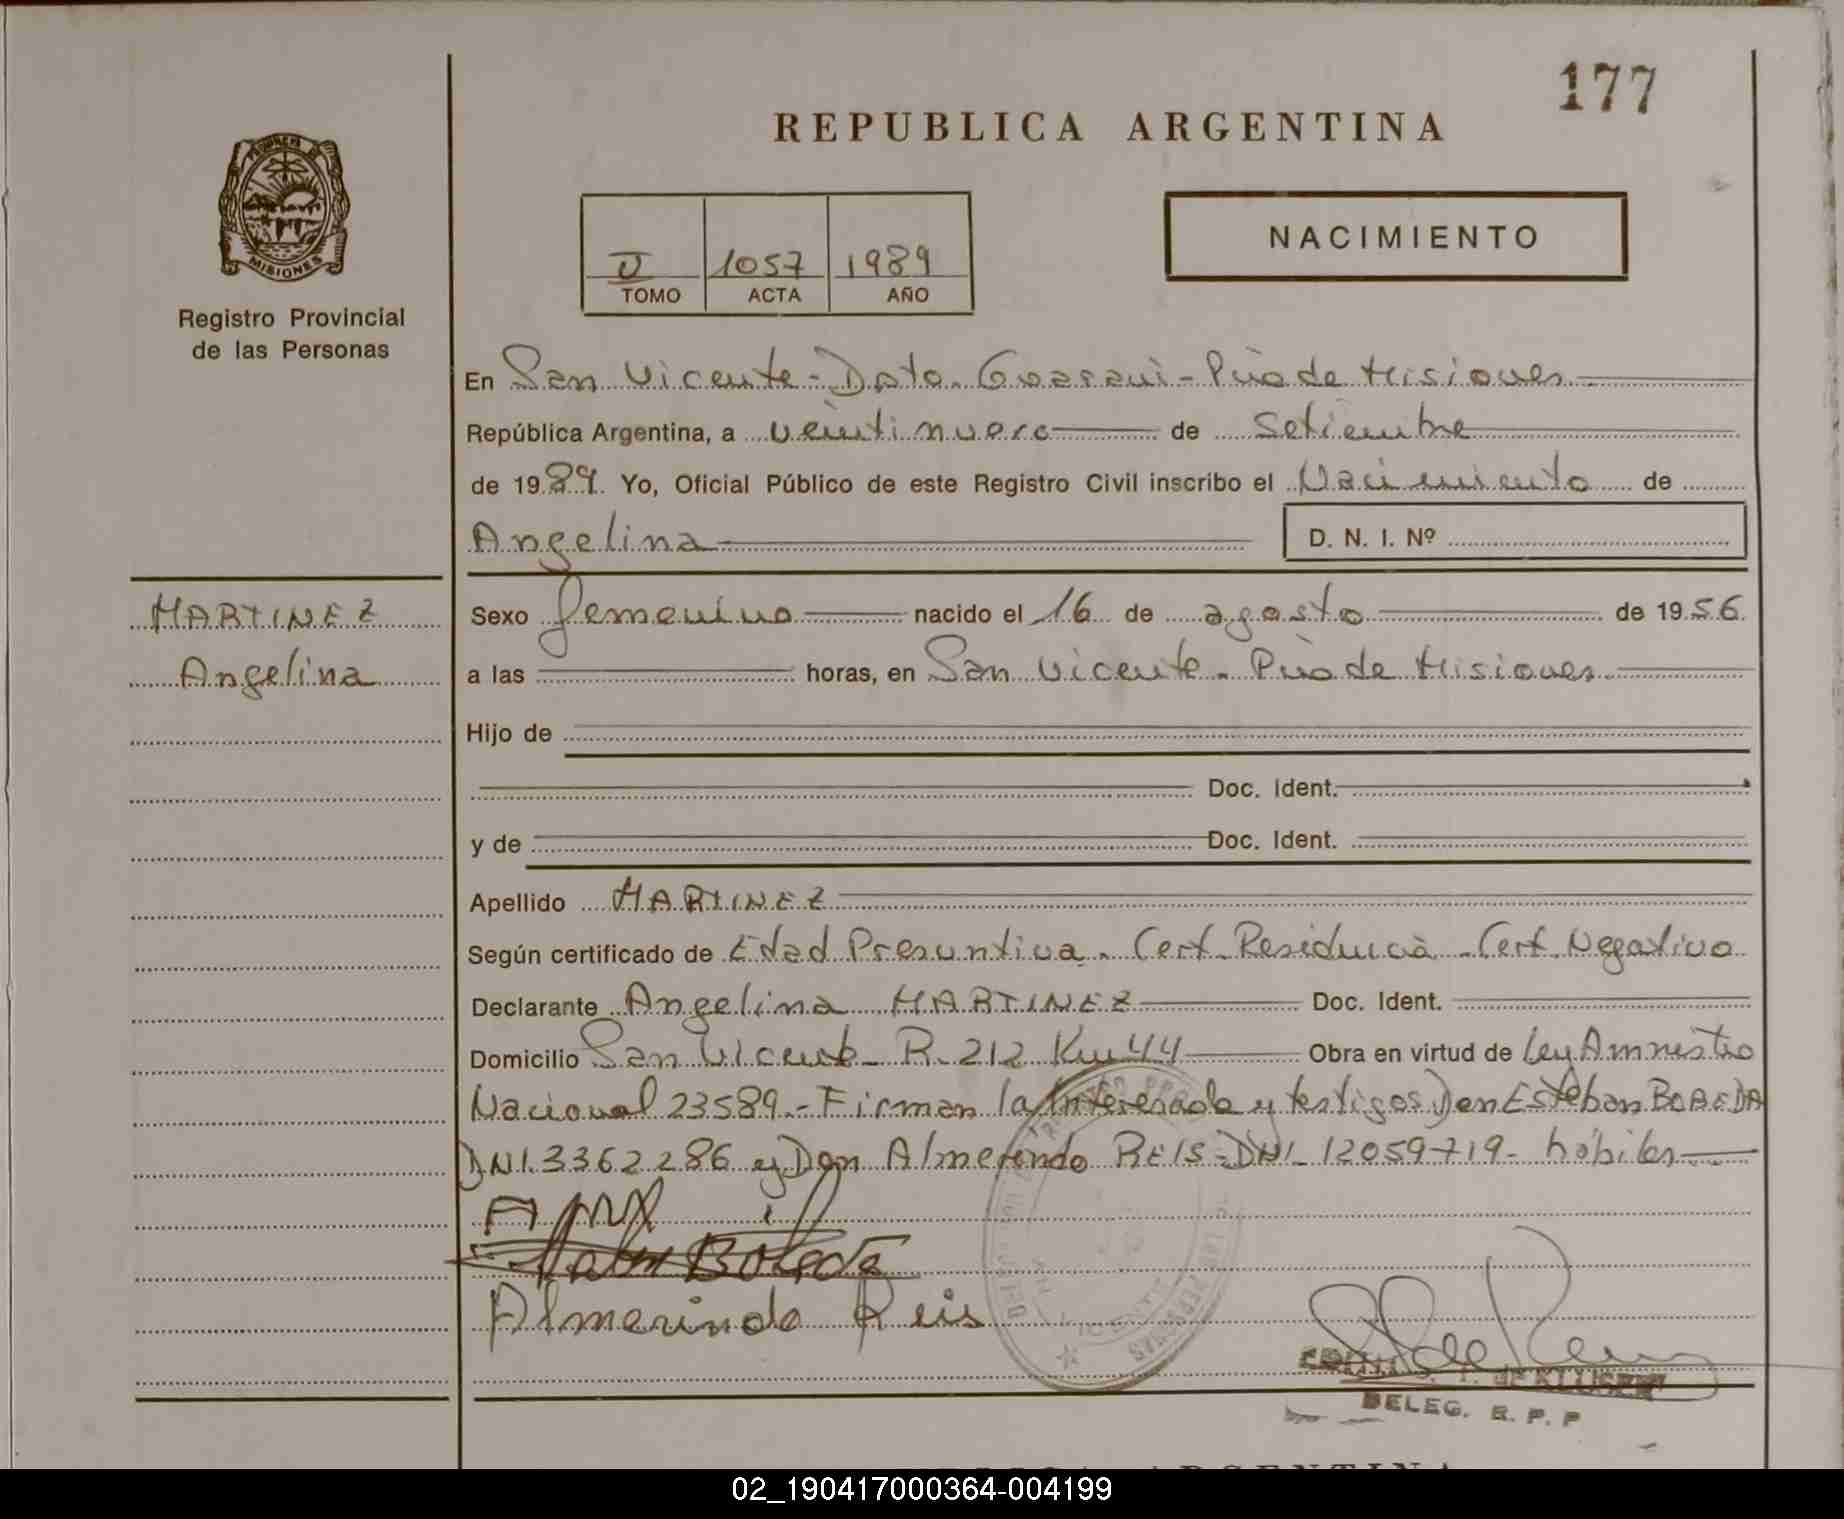 177
REPUBLICA ARGENTINA
NACIMIENTO
II 1057 1989
TOMO ACTA AÑO
MISIONES
Registro Provincial
de las Personas
En San Vicente - Dpto. Guarani - Pcia de Misiones
República Argentina, a veintinueve de Setiembre
de 1989. Yo, Oficial Público de este Registro Civil inscribo el Nacimiento de
Angelina D. N. I. Nº
MARTINEZ
Angelina
Sexo femenino nacido el 16 de agosto de 1956
a las horas, en San Vicente - Pcia de Misiones
Hijo de
Doc. Ident.
y de Doc. Ident.
Apellido MARTINEZ
Según certificado de Edad Presuntiva - Cert. Residencia - Cert. Negativo
Declarante Angelina MARTINEZ Doc. Ident.
Domicilio San Vicente - R. 212 Km 44 Obra en virtud de Ley Amnistia
Nacional 23589.- Firman la Interesada y testigos Don Esteban BOBEDA
DNI. 3362286 y Don Almerindo REIS - DNI 12059719 - hábiles
Bobeda
Almerindo Reis
DELEG. R. P. P
02_190417000364-004199